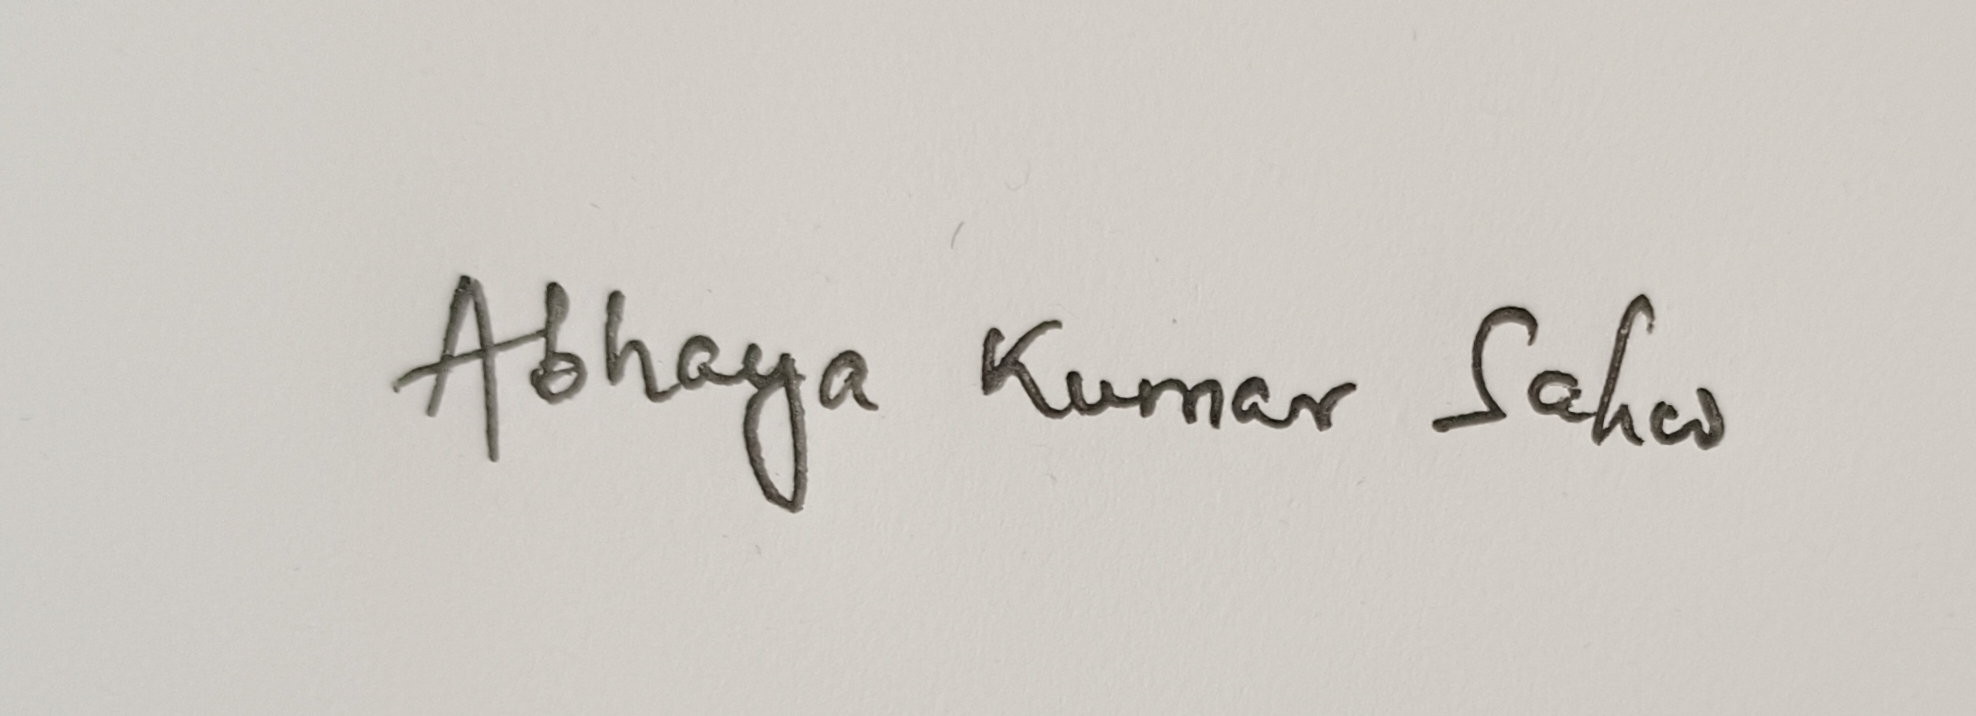 Abhaya Kumar Sahoo